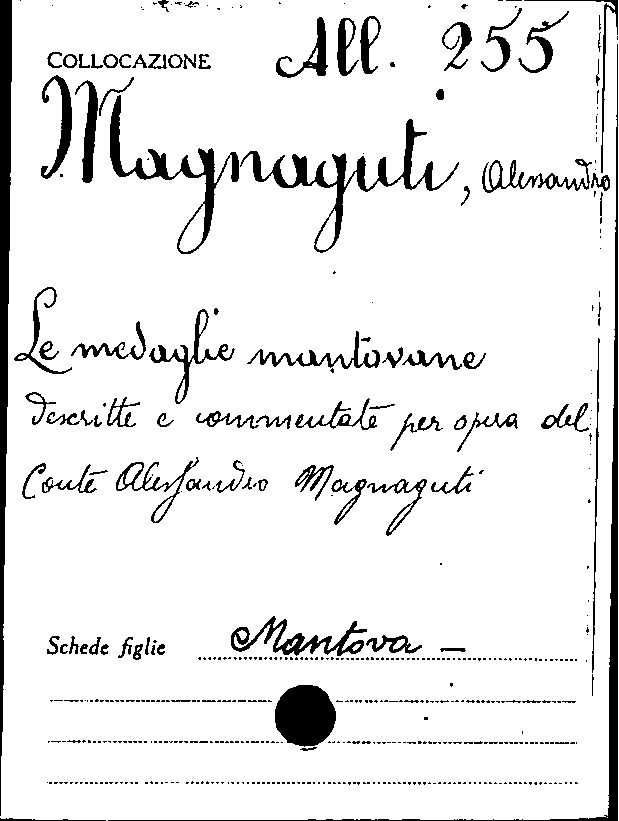 COLLOCAZIONE All. 255
Magnaguti, Alessandro
Le medaglie mantovane
descritte e commentate per opera del
Conte Alessandro Magnaguti
Schede figlie Mantova —